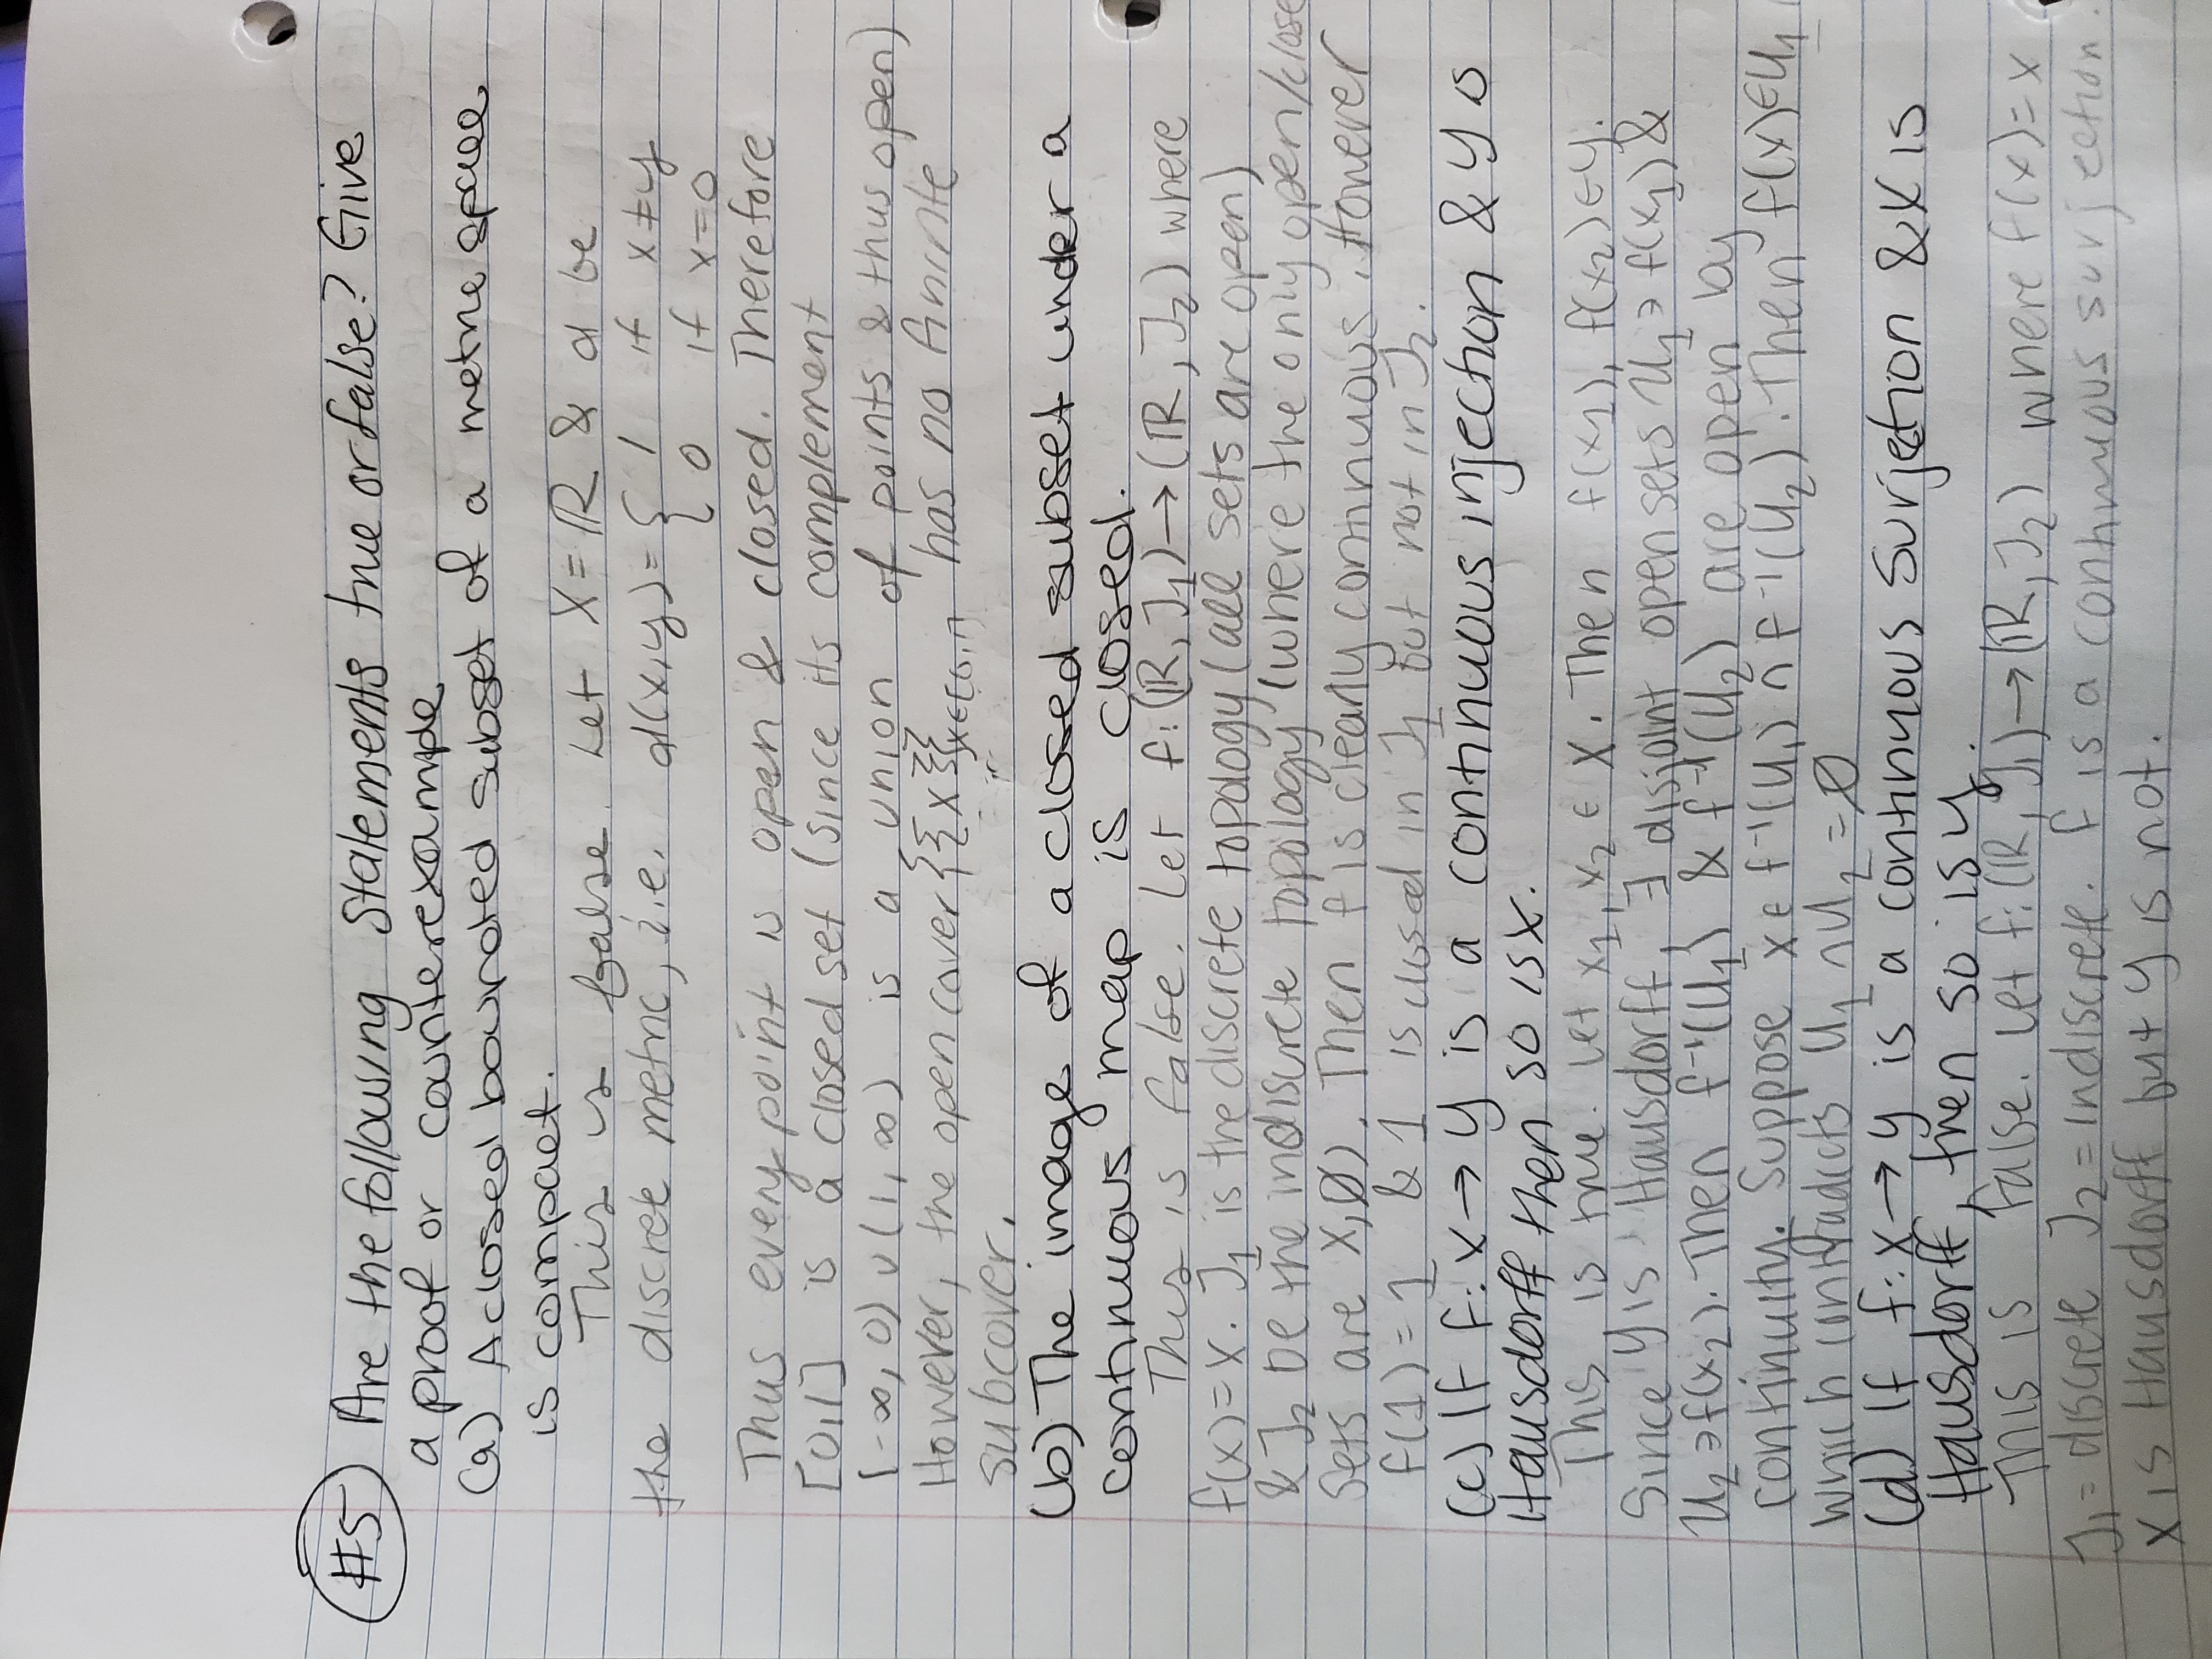 #5 Are the following statements true or false? Give
a proof or counterexample
(a) A closed bounded subset of a metric space
is compact.
This is false. Let X = ℝ & d be
the discrete metric, i.e. d(x,y) = { 1 if x ≠ y
{ 0 if x = 0
Thus every point is open & closed. Therefore
[0,1] is a closed set (since its complement
(-∞, 0) ∪ (1, ∞) is a union of points & thus open)
However, the open cover {{x}}x∈[0,1] has no finite
subcover.
(b) The image of a closed subset under a
continuous map is closed.
This is false. Let f: (ℝ, J₁) → (ℝ, J₂) where
f(x) = x. J₁ is the discrete topology (all sets are open)
& J₂ be the indiscrete topology (where the only open/close
sets are X, Ø). Then f is clearly continuous. However
f(1) = 1 & 1 is closed in J₁ but not in J₂.
(c) If f: X → Y is a continuous injection & Y is
Hausdorff then so is X.
This is true. Let x₁, x₂ ∈ X. Then f(x₁), f(x₂) ∈ Y.
Since Y is Hausdorff, ∃ disjoint open sets U₁ ∋ f(x₁) &
U₂ ∋ f(x₂). Then f⁻¹(U₁) & f⁻¹(U₂) are open by
continuity. Suppose x ∈ f⁻¹(U₁) ∩ f⁻¹(U₂). Then f(x) ∈ U₁
which contradicts U₁ ∩ U₂ = Ø
(d) If f: X → Y is a continuous surjection & X is
Hausdorff, then so is Y.
This is false. Let f: (ℝ, J₁) → (ℝ, J₂) where f(x) = x
J₁ = discrete J₂ = indiscrete. f is a continuous surjection.
X is Hausdorff but Y is not.